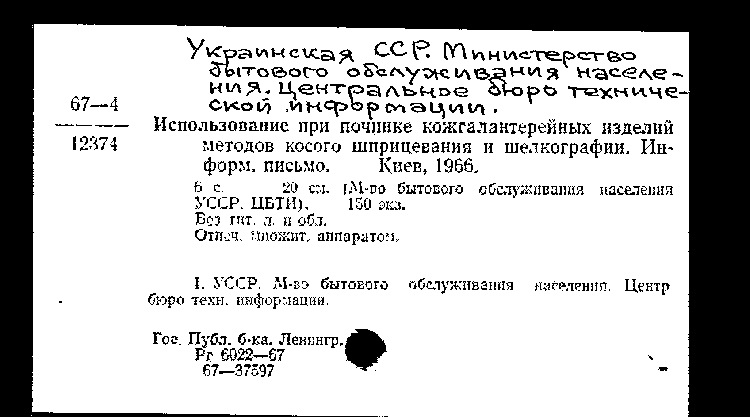 Украинская ССР. Министерство
бытового обслуживания населе-
ния. Центральное бюро техниче-
ской информации.
67—4
12374
Использование при починке кожгалантерейных изделий
методов косого шприцевания и шелкографии. Ин-
форм. письмо. Киев, 1966.
6 с. 20 см. (М-во бытового обслуживания населения
УССР. ЦБТИ). 150 экз.
Без тит. л. и обл.
Отпеч. множит. аппаратом.
I. УССР. М-во бытового обслуживания населения. Центр
бюро техн. информации.
Гос. Публ. б-ка. Ленингр.
Рг 6022—67
67—37597